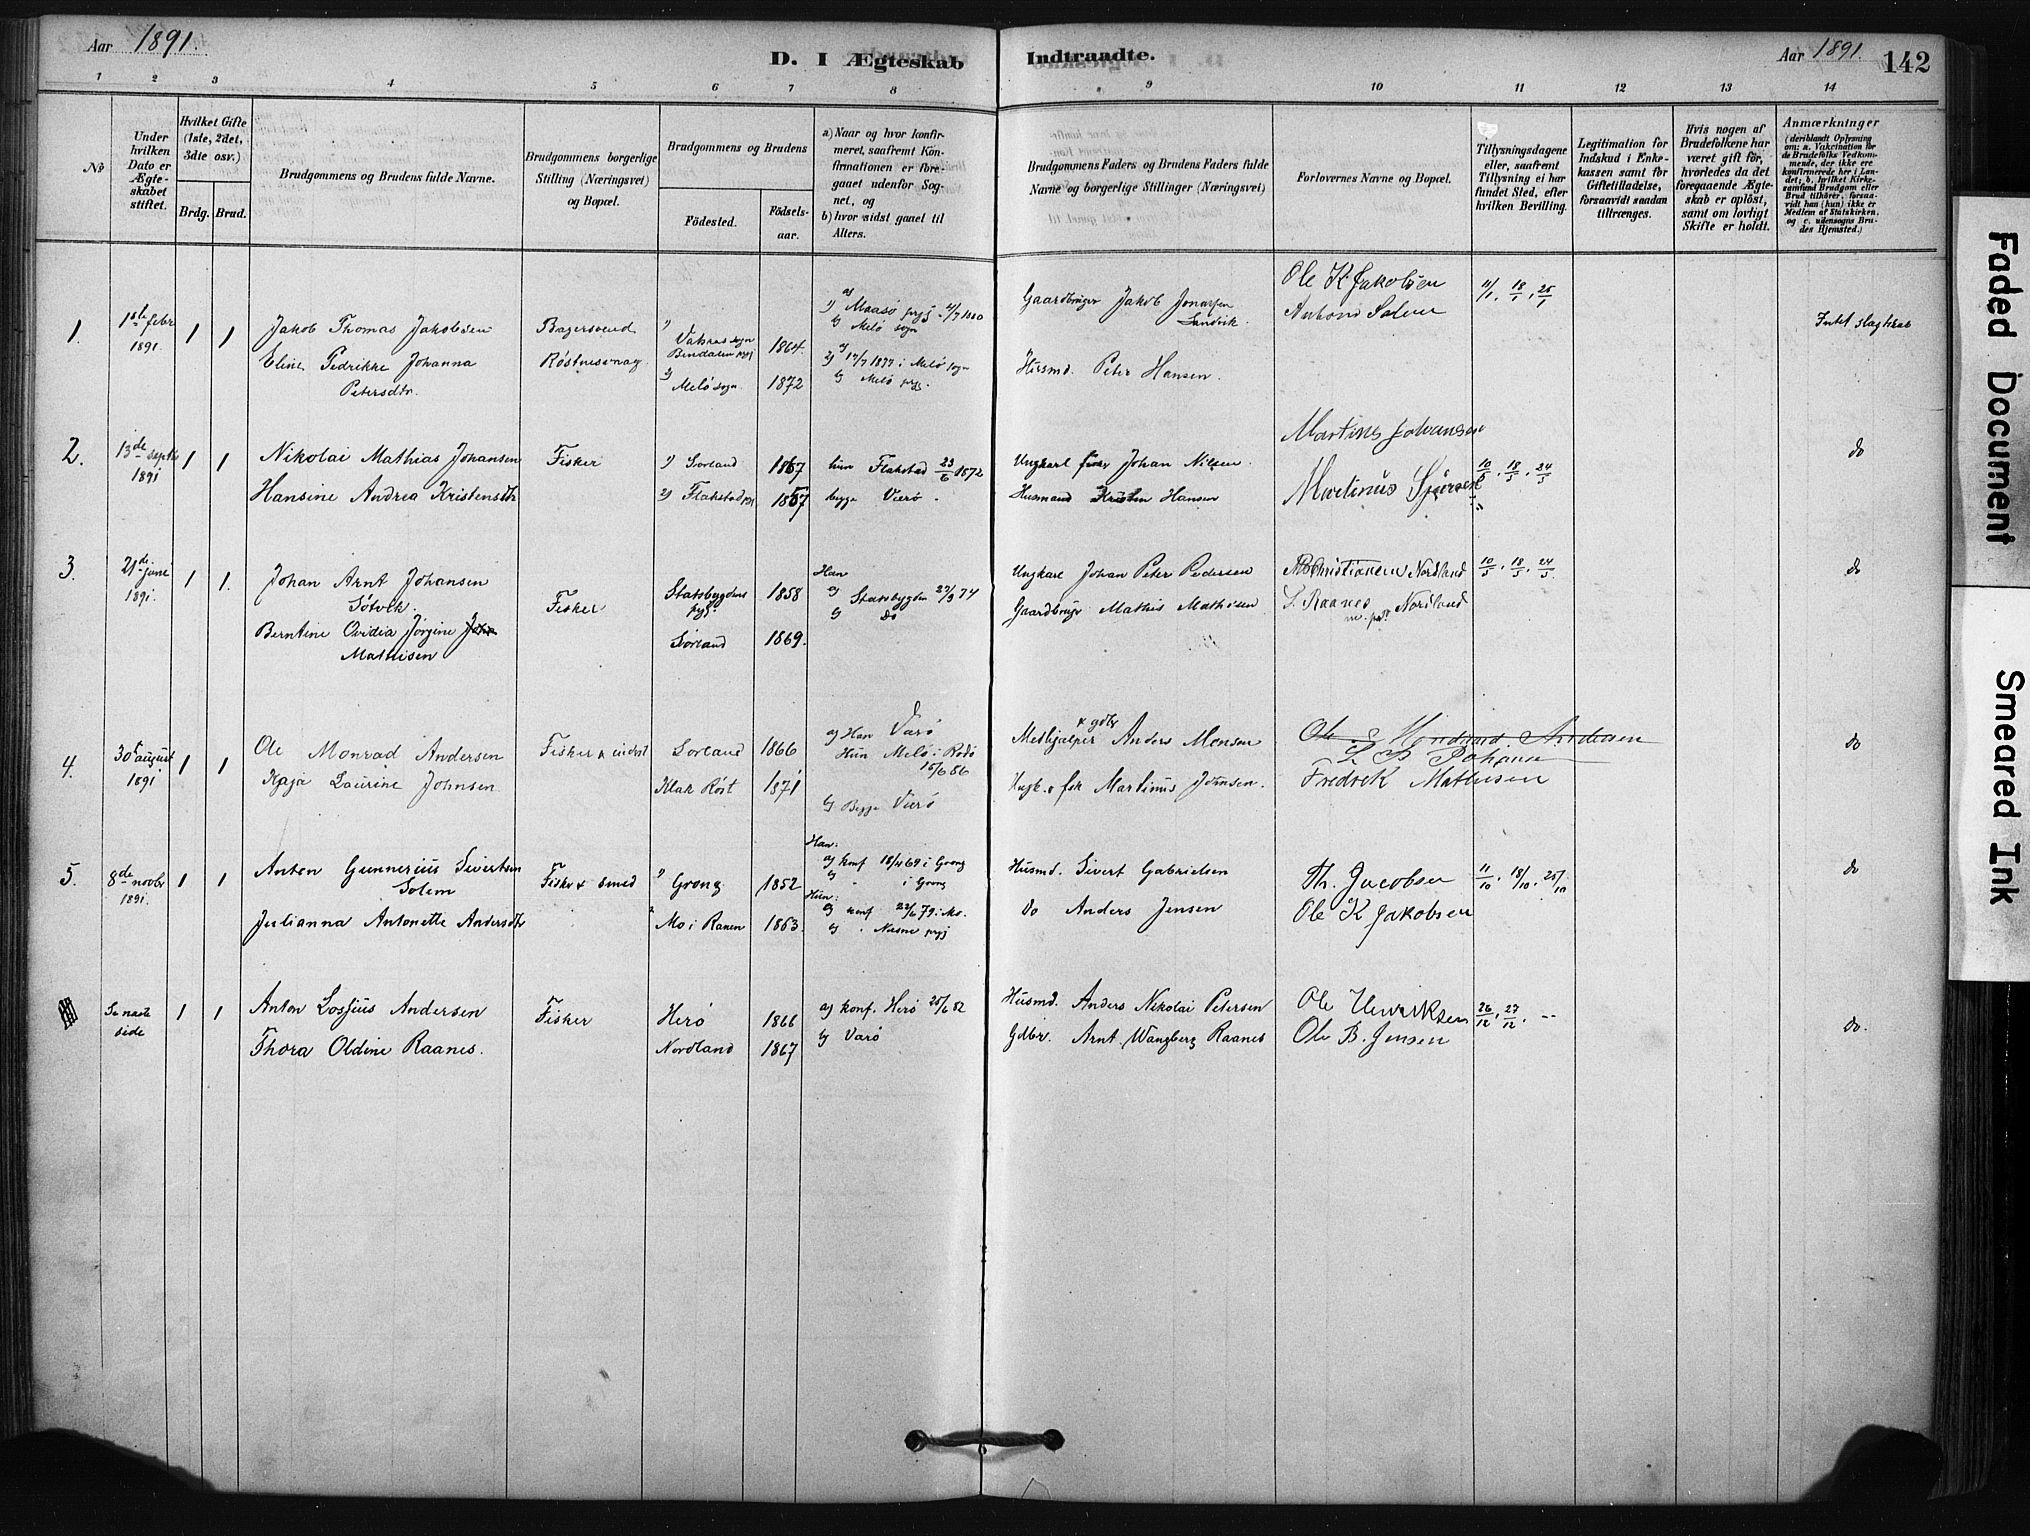 Aar 1891.
D. I Ægteskab Indtraadte.
Aar 1891. 142
1 2 3 4 5 6 7 8 9 10 11 12 13 14
No
Under hvilken Dato er Ægteskabet stiftet.
Hvilket Gifte (1ste, 2det, 3die osv.)
Brdg. Brud.
Brudgommens og Brudens fulde Navne.
Brudgommens borgerlige Stilling (Næringsvei) og Bopæl.
Brudgommens og Brudens
Födested. Födselsaar.
a) Naar og hvor konfirmeret, saafremt Konfirmationen er foregaaet udenfor Sognet, og
b) hvor sidst gaaet til Alters.
Brudgommens Faders og Brudens Faders fulde Navne og borgerlige Stillinger (Næringsvei)
Forlovernes Navne og Bopæl.
Tillysningsdagene eller, saafremt Tillysning ei har fundet Sted, efter hvilken Bevilling.
Legitimation for Indskud i Enkekassen samt for Giftetilladelse, forsaavidt saadan tiltrænges.
Hvis nogen af Brudefolkene har været gift før, hvorledes da det foregaaende Ægteskab er oplöst, samt om lovligt Skifte er holdt.
Anmærkninger
(deriblandt Oplysning om: a. Vakcination for de Brudefolks Vedkommende, der ikke ere konfirmerede her i Landet; b. hvilket Kirkesamfund Brudgom eller Brud tilhörer, forsaavidt han (hun) ikke er Medlem af Statskirken, og c. udensogns Brudes Hjemsted.)
1. 1ste febr 1891. 1 1
Jakob Thomas Jakobsen
Eline Fredrikke Johanna
Petersdtr.
Bagersvend
1) Bindalen prgj 1864
2) Melö sogn 1872
a) Maasö prgj
b) Melö sogn
2) a) 17/7 1877 i Melö sogn
b) Melö prgj.
Gaardbruger Jakob Jonassen
Sandvik.
Husmd. Peter Hansen.
Ole K Jakobsen
Antoni Solem
11/1, 18/1, 25/1
Intet slagtskab
2. 13de septbr 1891 1 1
Nikolai Mathias Johansen
Hansine Andrea Kristensdtr
Fisker
1) Sörland 1867
2) Flakstad 1857
hun Flakstad 23/6 1872
begge Værö.
Ungkarl fisker Johan Nilsen.
Husmand Kristen Hansen
Martines Johansen
Martinus
10/5, 18/5, 24/5
do
3. 21de juni 1891. 1 1.
Johan Arnt Johansen
Sötvik.
Berntine Ovidia Jörgine
Mathisen
Fisker
Statsbygdens prgj 1858
Sörland 1869.
Han
a) Statsbygden 27/9 74
b) Do
Ungkarl Johan Peter Pedersen
Gaardbruger Mathis Mathisen
Christiansen Nordland
S. Raanes Nordland
10/5, 18/5, 24/5
do
4. 30te august 1891 1 1
Ole Monrad Andersen
Kaja Laurine Johnsen
Fisker & inderst
Sörland 1866
Klak Röst 1871
a) Han Værö
Hun Melö i Rödö
15/6 86
b) Begge Værö
Medhjælper & gdbr Anders Monsen
Ungk. & fsk Martinus Johnsen.
Ole Monrad Andersen
Johansen
Fredrik Mathisen
do
5. 8de novbr 1891. 1 1
Anton Gunnerius Sivertsen
Solem
Julianna Antonette Andersdtr
Fisker & Smed
1) Grong 1852
2 Mo i Ranen 1863.
Han:
a) konf 18/4 69 i Grong
b) " i Grong
Hun:
a) konf 22/6 79 i Mo.
b) " Næsne prgj
Husmd. Sivert Gabrielsen
Do Anders Jensen
Th. Jacobsen
Ole K Jakobsen
11/10, 18/10, 25/10
do
Se næste side 1 1
Anton Losjius Andersen
Thora Oldine Raanes.
Fisker
Herö 1866
Nordland 1867
a) konf. Herö 25/6 82
b) Værö
Husmd. Anders Nikolai Petersen
Gdbr. Arnt Wangberg Raanes
Ole Henriksen
Ole B. Jensen
26/12, 27/12, --
do.
Faded Document
Smeared Ink